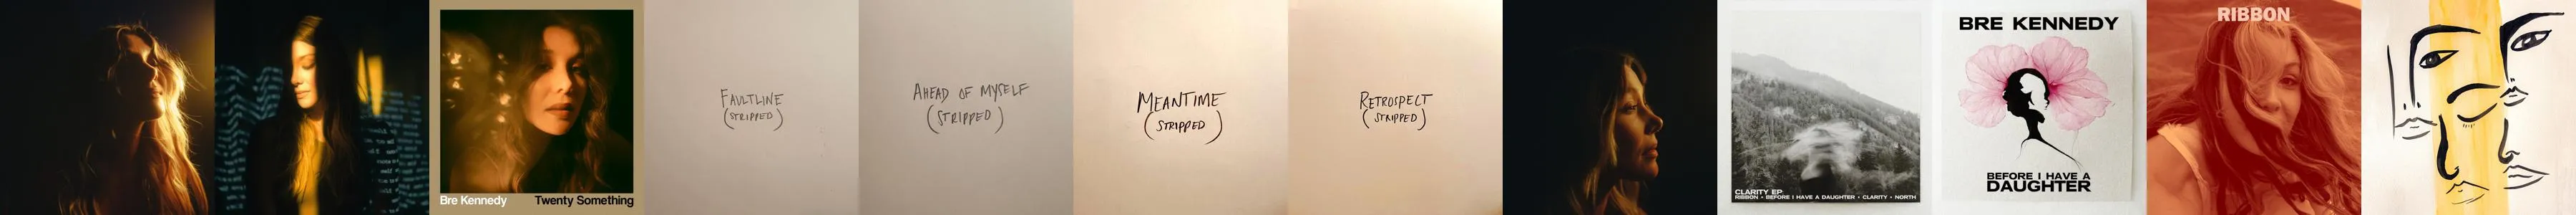 Bre Kennedy
Twenty Something
FAULTLINE
(STRIPPED)
AHEAD OF MYSELF
(STRIPPED)
MEANTIME
(STRIPPED)
RETROSPECT
(STRIPPED)
CLARITY EP:
RIBBON • BEFORE I HAVE A DAUGHTER • CLARITY • NORTH
BRE KENNEDY
BEFORE I HAVE A
DAUGHTER
RIBBON